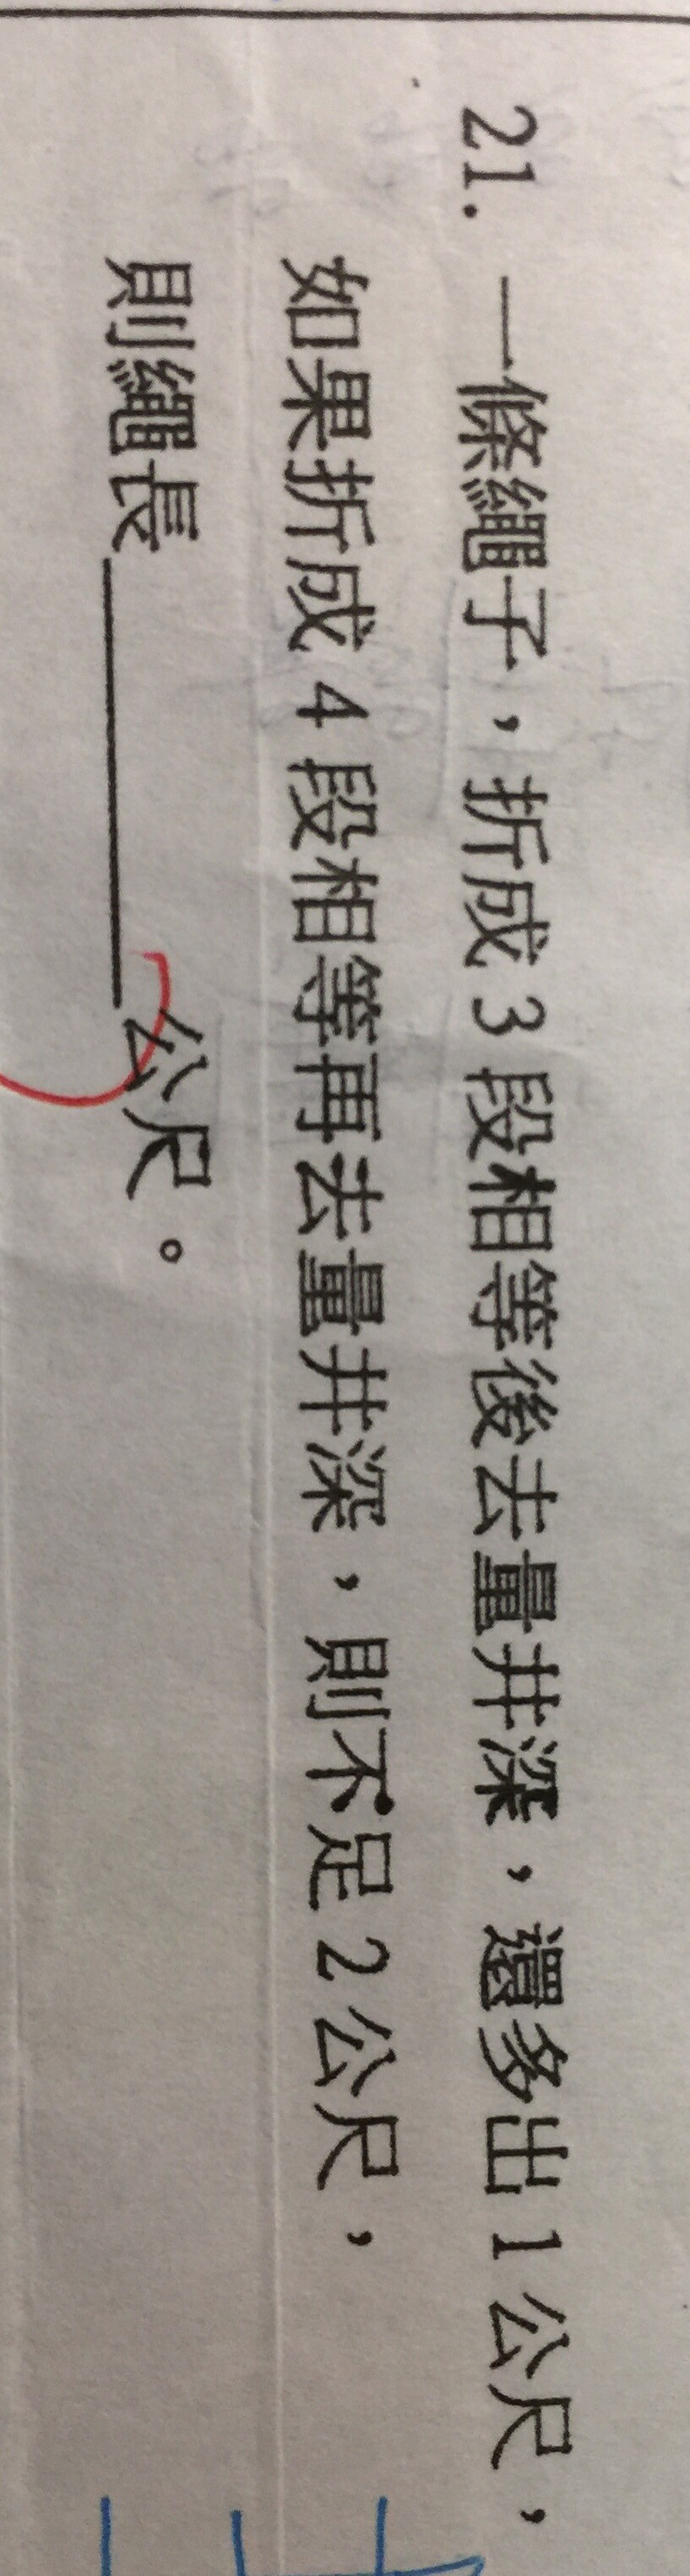 21. 一條繩子，折成 3 段相等後去量井深，還多出 1 公尺，
如果折成 4 段相等再去量井深，則不足 2 公尺，
則繩長＿＿＿＿公尺。